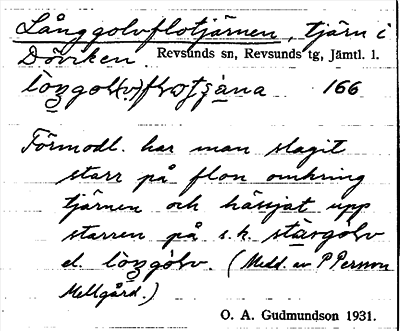 Långgolvflotjärnen, tjärn i
Döviken. Revsunds sn, Revsunds tg, Jämtl. l.
166
Förmodl. har man slagit
starr på flon omkring
tjärnen och hässjat upp
starren på s.k. stärgólv
el. (Medd. av P Persson
Mellgård.)
O. A. Gudmundson 1931.